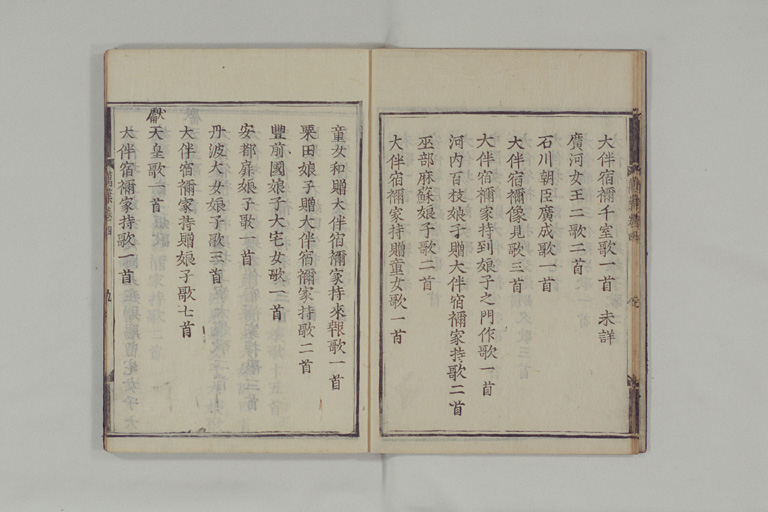 大伴宿禰千室歌一首 未詳
廣河女王二歌二首
石川朝臣廣成歌一首
大伴宿禰像見歌三首
大伴宿禰家持到娘子之門作歌一首
河内百枝娘子贈大伴宿禰家持歌二首
巫部麻蘇娘子歌二首
大伴宿禰家持贈童女歌一首
童女和贈大伴宿禰家持来報歌一首
粟田娘子贈大伴宿禰家持歌二首
豐前國娘子大宅女歌一首
安都扉娘子歌一首
丹波大女娘子歌三首
大伴宿禰家持贈娘子歌七首
獻天皇歌一首
大伴宿禰家持歌一首